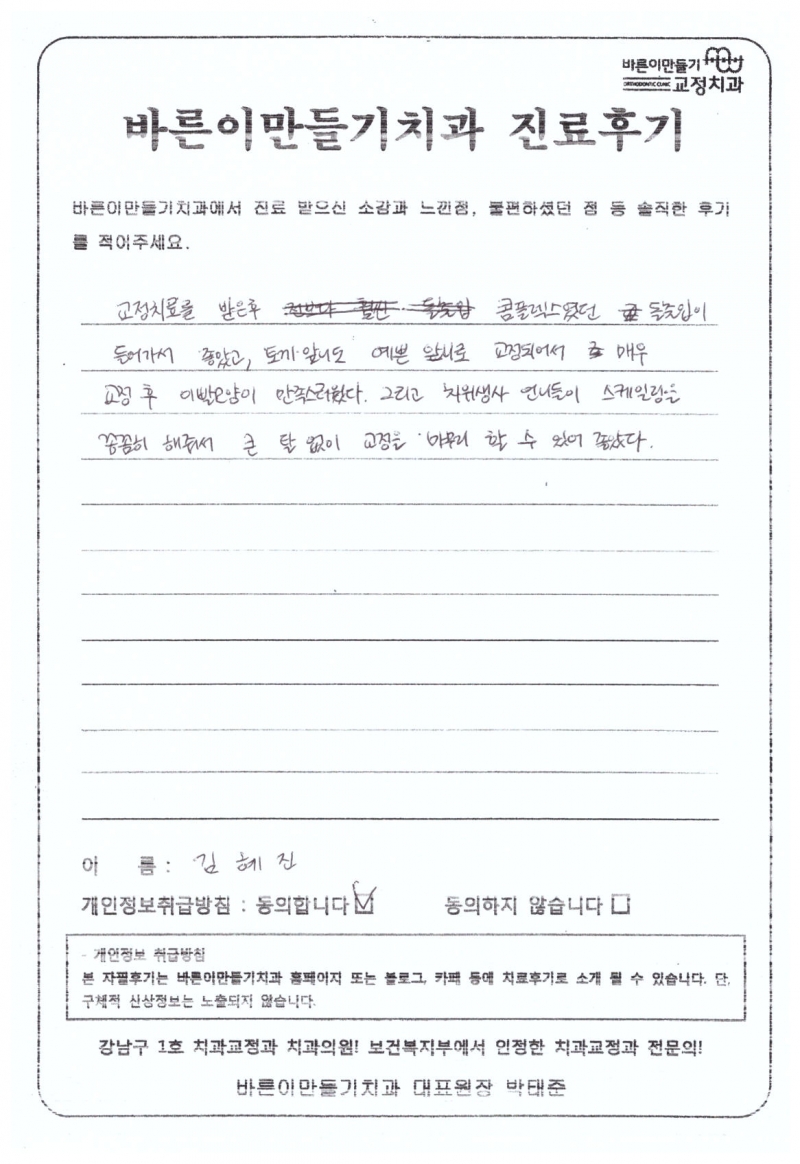 바른이만들기
ORTHODONTIC CLINIC 교정치과
바른이만들기치과 진료후기
바른이만들기치과에서 진료 받으신 소감과 느낀점, 불편하셨던 점 등 솔직한 후기
를 적어주세요.
교정치료를 받은후 콤플렉스였던 돌출입이
들어가서 좋았고, 토끼 앞니도 예쁜 앞니로 교정되어서 매우
교정 후 이빨모양이 만족스러웠다. 그리고 치위생사 언니들이 스케일링을
꼼꼼히 해줘서 큰 탈 없이 교정을 마무리 할 수 있어 좋았다.
이 름 : 김혜진
개인정보취급방침 : 동의합니다 동의하지 않습니다
- 개인정보 취급방침
본 자필후기는 바른이만들기치과 홈페이지 또는 블로그, 카페 등에 치료후기로 소개 될 수 있습니다. 단,
구체적 신상정보는 노출되지 않습니다.
강남구 1호 치과교정과 치과의원! 보건복지부에서 인정한 치과교정과 전문의!
바른이만들기치과 대표원장 박태준